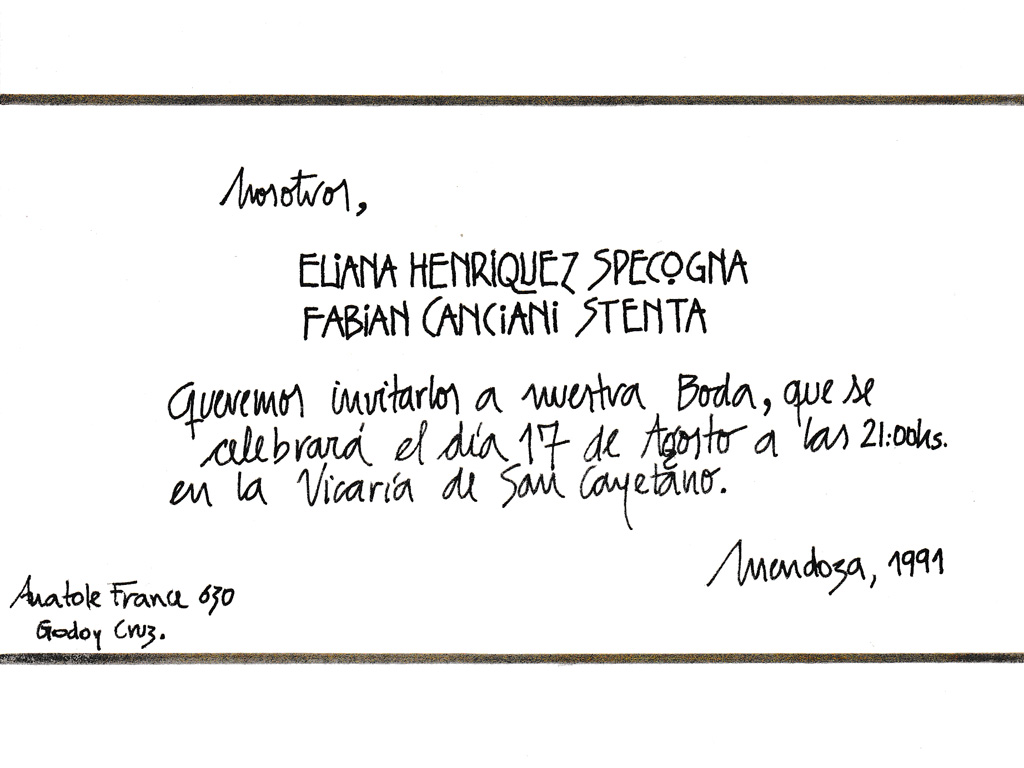 Nosotros,
ELIANA HENRIQUEZ SPECOGNA
FABIAN CANCIANI STENTA
Queremos invitarlos a nuestra Boda, que se
celebrará el día 17 de Agosto a las 21:00hs.
en la Vicaría de San Cayetano.
Mendoza, 1991
Anatole France 630
Godoy Cruz.